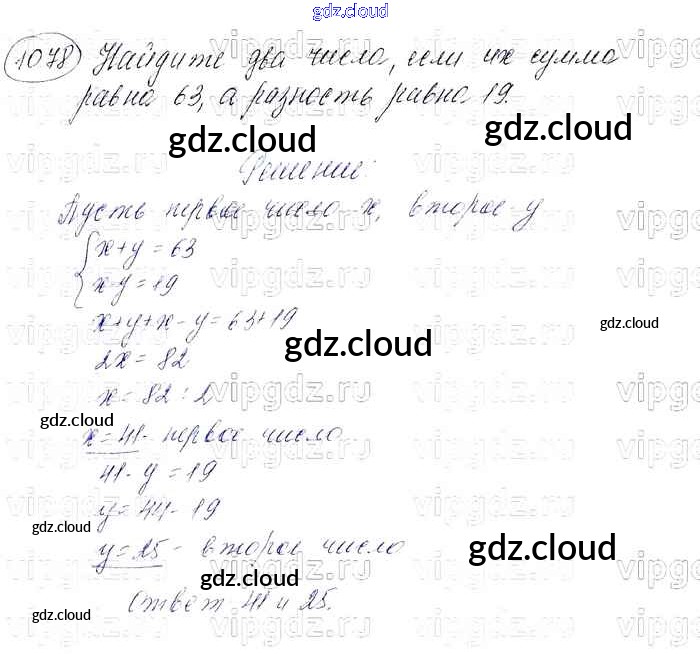 gdz.cloud
1078 Найдите два числа, если их сумма
равна 63, а разность равна 19.
gdz.cloud
Решение:
Пусть первое число - x, второе - y
x + y = 63
x - y = 19
x + y + x - y = 63 + 19
gdz.cloud
2x = 82
gdz.cloud
x = 82 : 2
gdz.cloud
x = 41 - первое число
41 - y = 19
y = 44 - 19
gdz.cloud
y = 25 - второе число
gdz.cloud
gdz.cloud
Ответ 41 и 25.
gdz.cloud